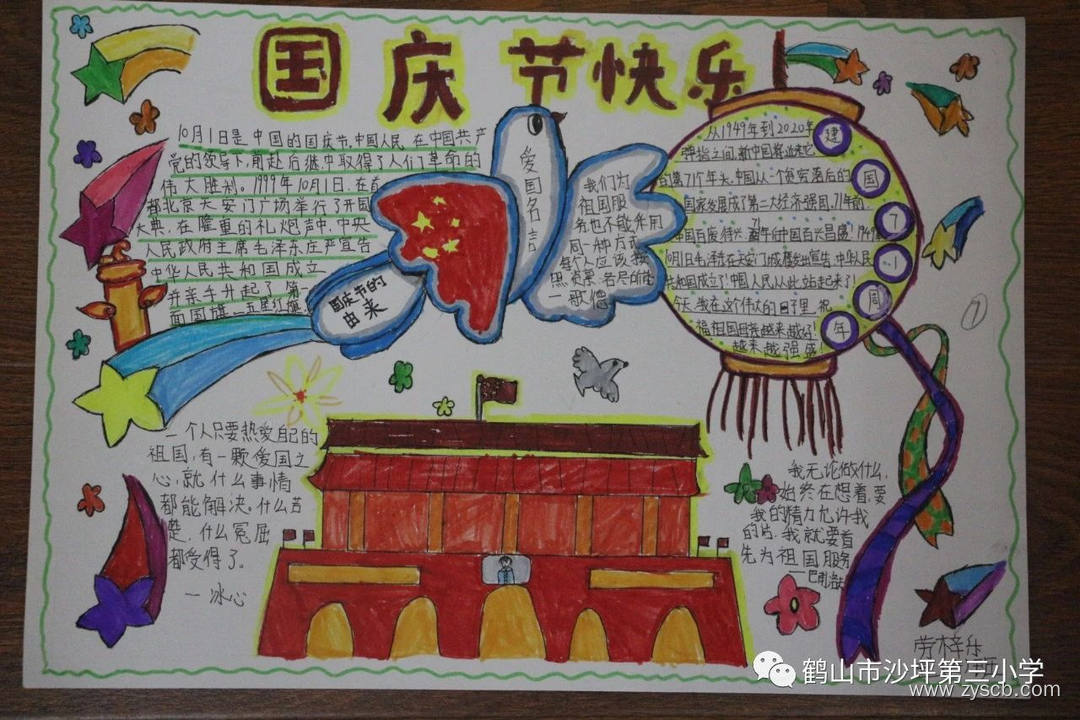 国庆节快乐
10月1日是中国的国庆节,中国人民在中国共产
党的领导下,前赴后继中取得了人们革命的
伟大胜利。1999年10月1日,在首
都北京天安门广场举行了开国
大典,在隆重的礼炮声中,中央
人民政府主席毛泽东庄严宣告
中华人民共和国成立
并亲手升起了第一
面国旗—五星红旗。
国庆节的
由来
爱国名言
我们为
祖国服
务也不能采用
同一种方式
每个人应该按
照资禀,各尽所能
—歌德
从1949年到2020年
弹指之间,新中国将迎来它
的第71个年头,中国从一个贫穷落后的
国家发展成了第二大经济强国,71年前,
中国百废待兴,71年后中国百兴昌盛!1949年
共和国成立了!中国人民从此站起来了!
今天,我在这个伟大的日子里,祝
福祖国母亲越来越好!
越来越强盛!
建
国
7
1
周
年
一个人只要热爱自己的
祖国,有一颗爱国之
心,就什么事情
都能解决。什么苦
楚,什么冤屈
都受得了。
—冰心
我无论做什么,
始终在想着,要
我的精力允许我
的话,我就要首
先为祖国服务
劳梓乐
鹤山市沙坪第三小学
www.zyscb.com